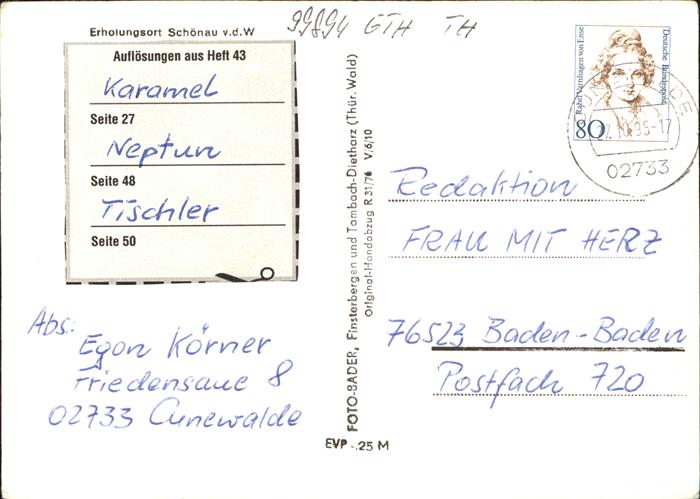 Erholungsort Schönau v.d.W
99894 GTH TH
Auflösungen aus Heft 43
Karamel
Seite 27
Neptun
Seite 48
Tischler
Seite 50
Abs:
Egon Körner
Friedensaue 8
02733 Cunewalde
EVP -.25 M
FOTO-BADER, Finsterbergen und Tambach-Dietharz (Thür. Wald)
Original-Handabzug R 31/76 V/6/10
Rahel Varnhagen von Ense
Deutsche Bundespost
80
02733
Redaktion
FRAU MIT HERZ
76523 Baden-Baden
Postfach 720